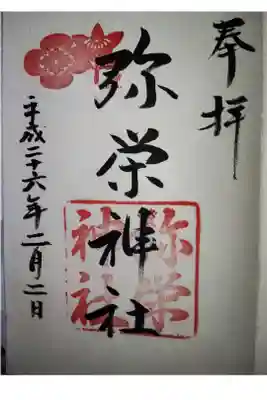 奉拝
弥栄神社
弥栄
神社
平成二十六年二月二日